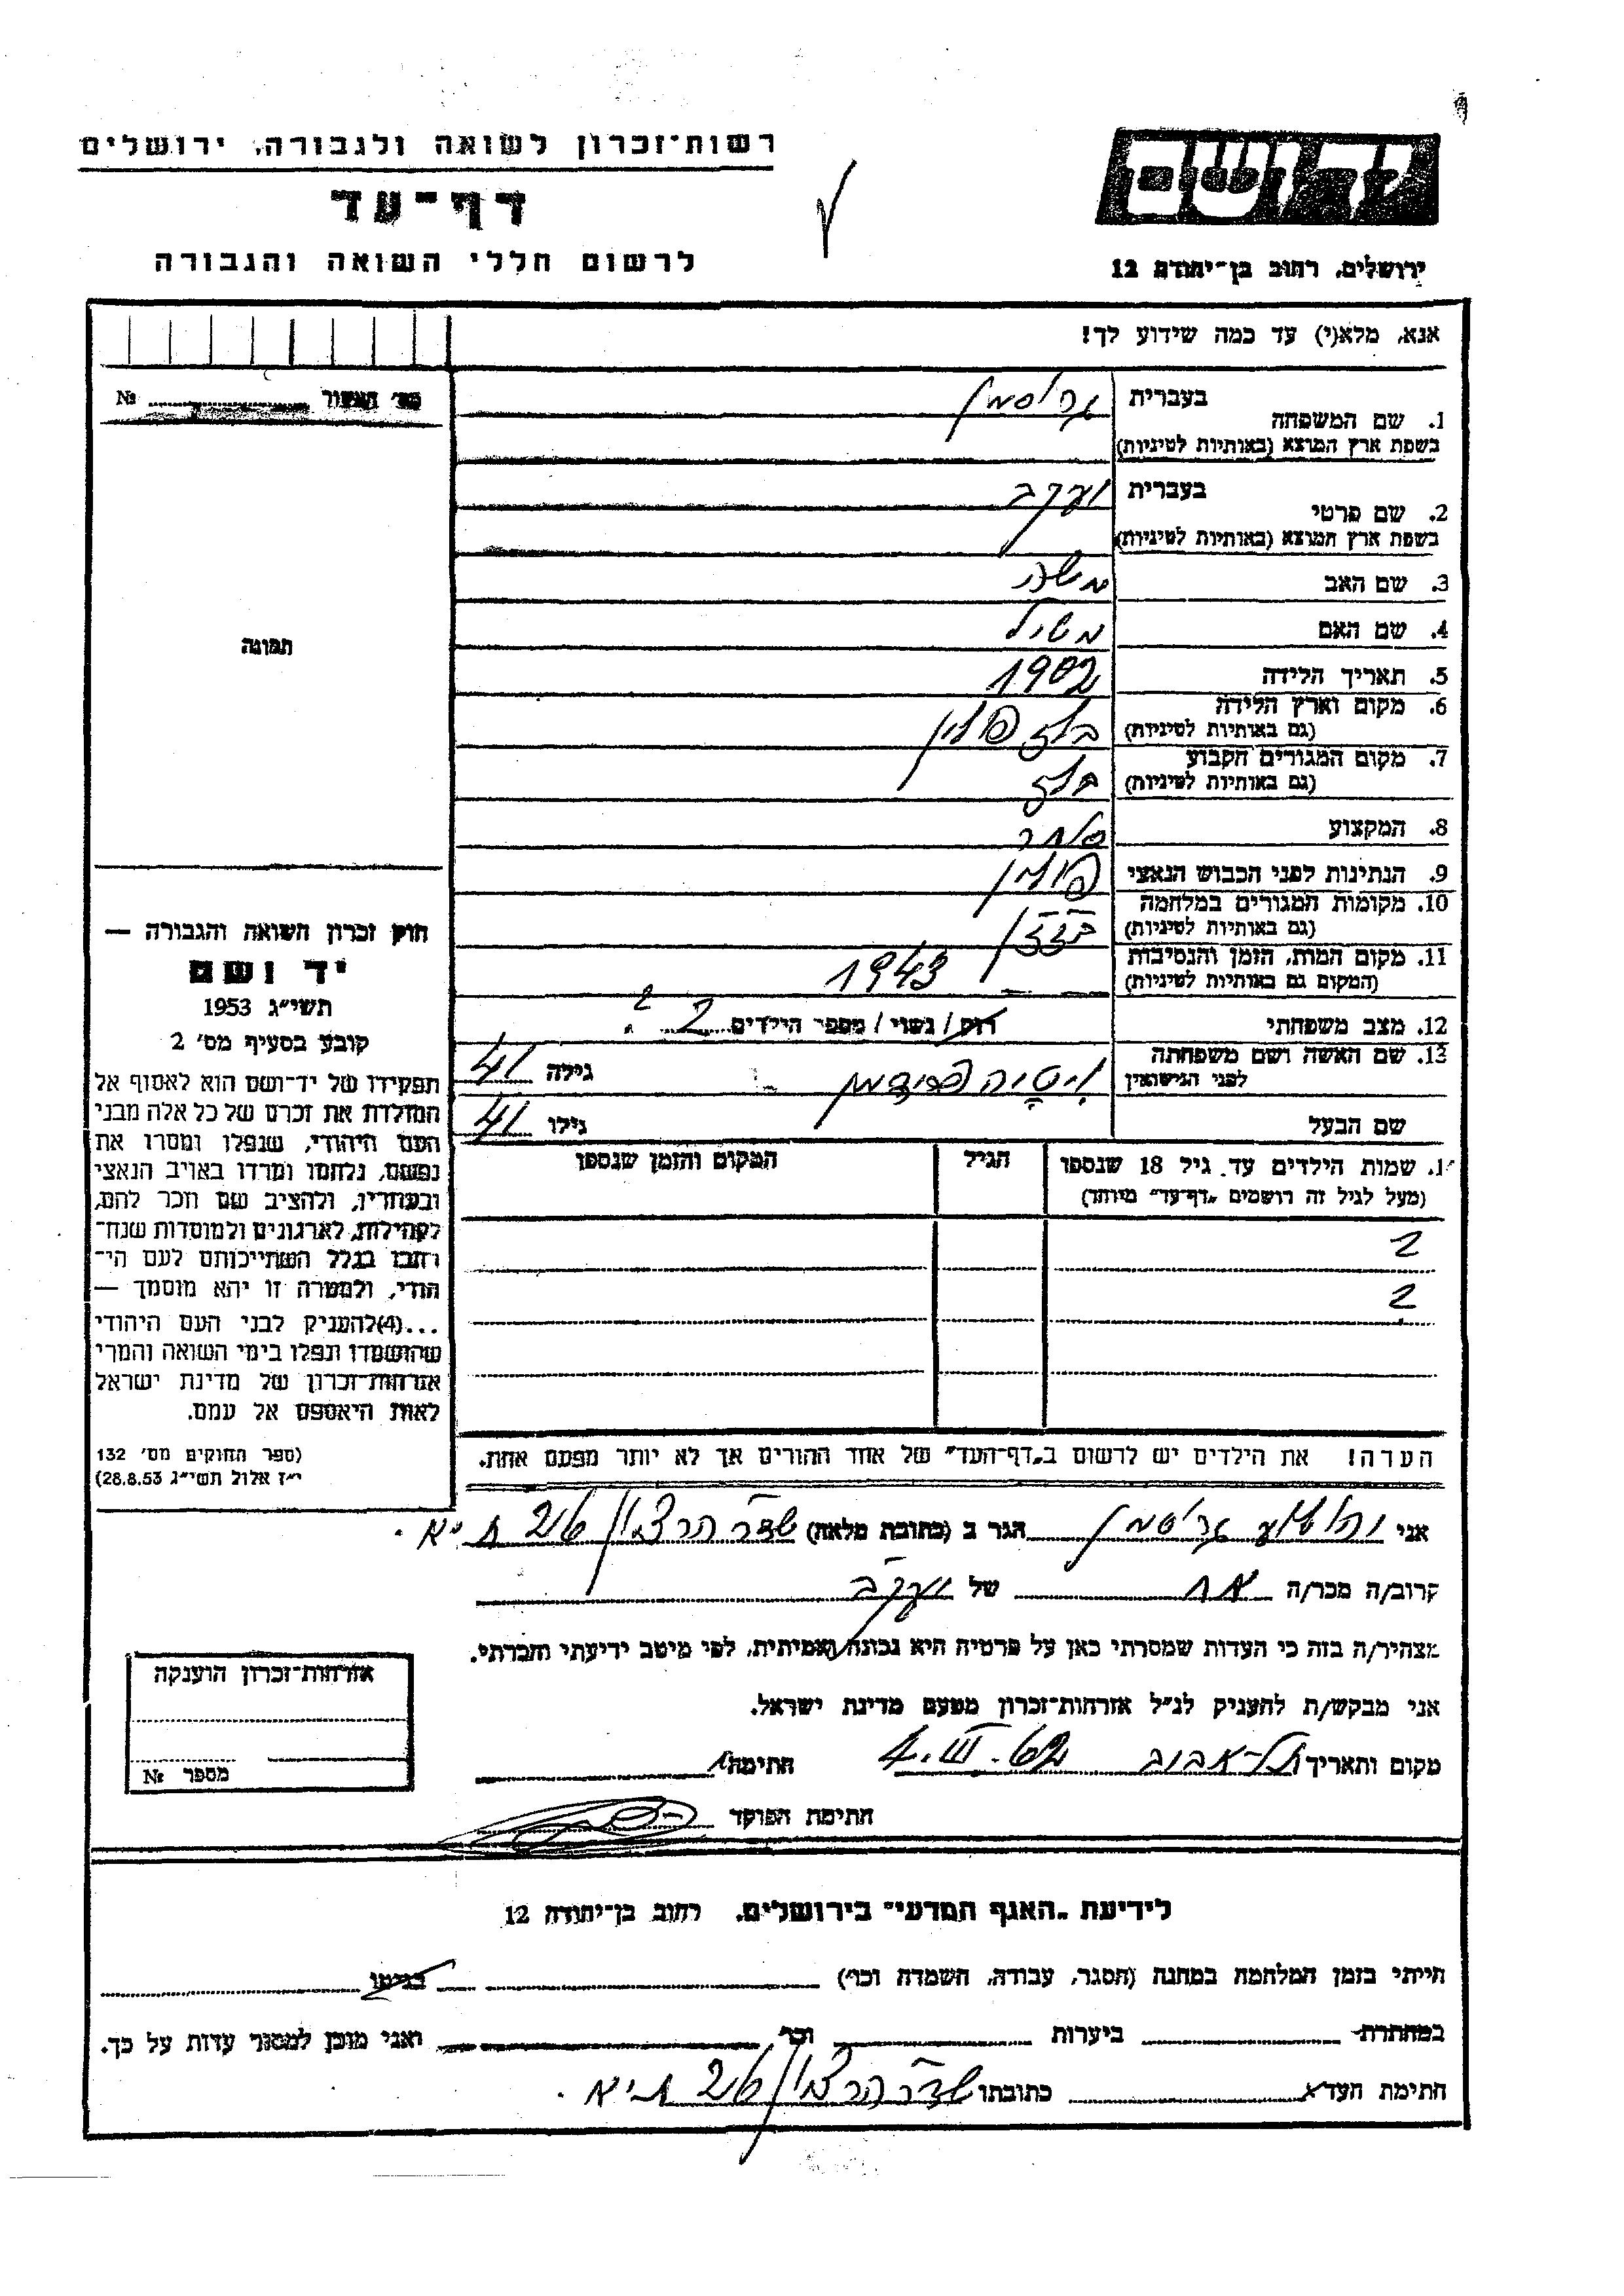 רשות־זכרון לשואה ולגבורה, ירושלים
דף־עד
לרשום חללי השואה והגבורה
יד ושם
ירושלים, רחוב בן־יהודה 12
אנא, מלא(י) עד כמה שידוע לך!
מס׳ האשור № ........
1. שם המשפחה בעברית
בשפת ארץ המוצא (באותיות לטיניות)
2. שם פרטי בעברית יעקב
בשפת ארץ המוצא (באותיות לטיניות)
3. שם האב משה
4. שם האם
5. תאריך הלידה 1902
6. מקום וארץ הלידה בלז פולין
(גם באותיות לטיניות)
7. מקום המגורים הקבוע בלז
(גם באותיות לטיניות)
8. המקצוע סוחר
9. הנתינות לפני הכבוש הנאצי פולין
10. מקומות המגורים במלחמה
(גם באותיות לטיניות)
11. מקום המות, הזמן והנסיבות 1943
(המקום גם באותיות לטיניות)
12. מצב משפחתי רווק / נשוי / מספר הילדים 2 ?
13. שם האשה ושם משפחתה לפני הנישואין פרידמן גילה 41
שם הבעל גילו 41
תמונה
חוק זכרון השואה והגבורה —
יד ושם
תשי״ג 1953
קובע בסעיף מס׳ 2
תפקידו של יד־ושם הוא לאסוף אל
המולדת את זכרם של כל אלה מבני
העם היהודי, שנפלו ומסרו את
נפשם, נלחמו ומרדו באויב הנאצי
ובעוזריו, ולהציב שם וזכר להם,
לקהילות, לארגונים ולמוסדות שנח־
רבו בגלל השתייכותם לעם הי־
הודי, ולמטרה זו יהא מוסמך —
...(4) להעניק לבני העם היהודי
שהושמדו ונפלו בימי השואה והמרי
אזרחות־זכרון של מדינת ישראל
לאות היאספם אל עמם.
(ספר החוקים מס׳ 132
י״ז אלול תשי״ג 28.8.53)
1. שמות הילדים עד גיל 18 שנספו
(מעל לגיל זה רושמים „דף־עד״ מיוחד)
הגיל
המקום והזמן שנספו
2
2
הערה! את הילדים יש לרשום ב„דף־העד״ של אחד ההורים אך לא יותר מפעם אחת.
אני יהושע הגר ב (כתובת מלאה) שדר הר ציון ת״א.
קרוב/ה מכר/ה אח של יעקב
מצהיר/ה בזה כי העדות שמסרתי כאן על פרטיה היא נכונה ואמיתית, לפי מיטב ידיעתי והכרתי.
אני מבקש/ת להעניק לנ״ל אזרחות־זכרון מטעם מדינת ישראל.
מקום ותאריך תל־אביב 4.III.62 חתימה
חתימת הפוקד
אזרחות־זכרון הוענקה
מספר №
לידיעת „האגף המדעי״ בירושלים, רחוב בן־יהודה 12
הייתי בזמן המלחמה במחנה (הסגר, עבודה, השמדה וכו׳) בגיטו
במחתרת ביערות וכו׳ ואני מוכן למסור עדות על כך.
חתימת העד כתובתו שדר הר ציון ת״א.